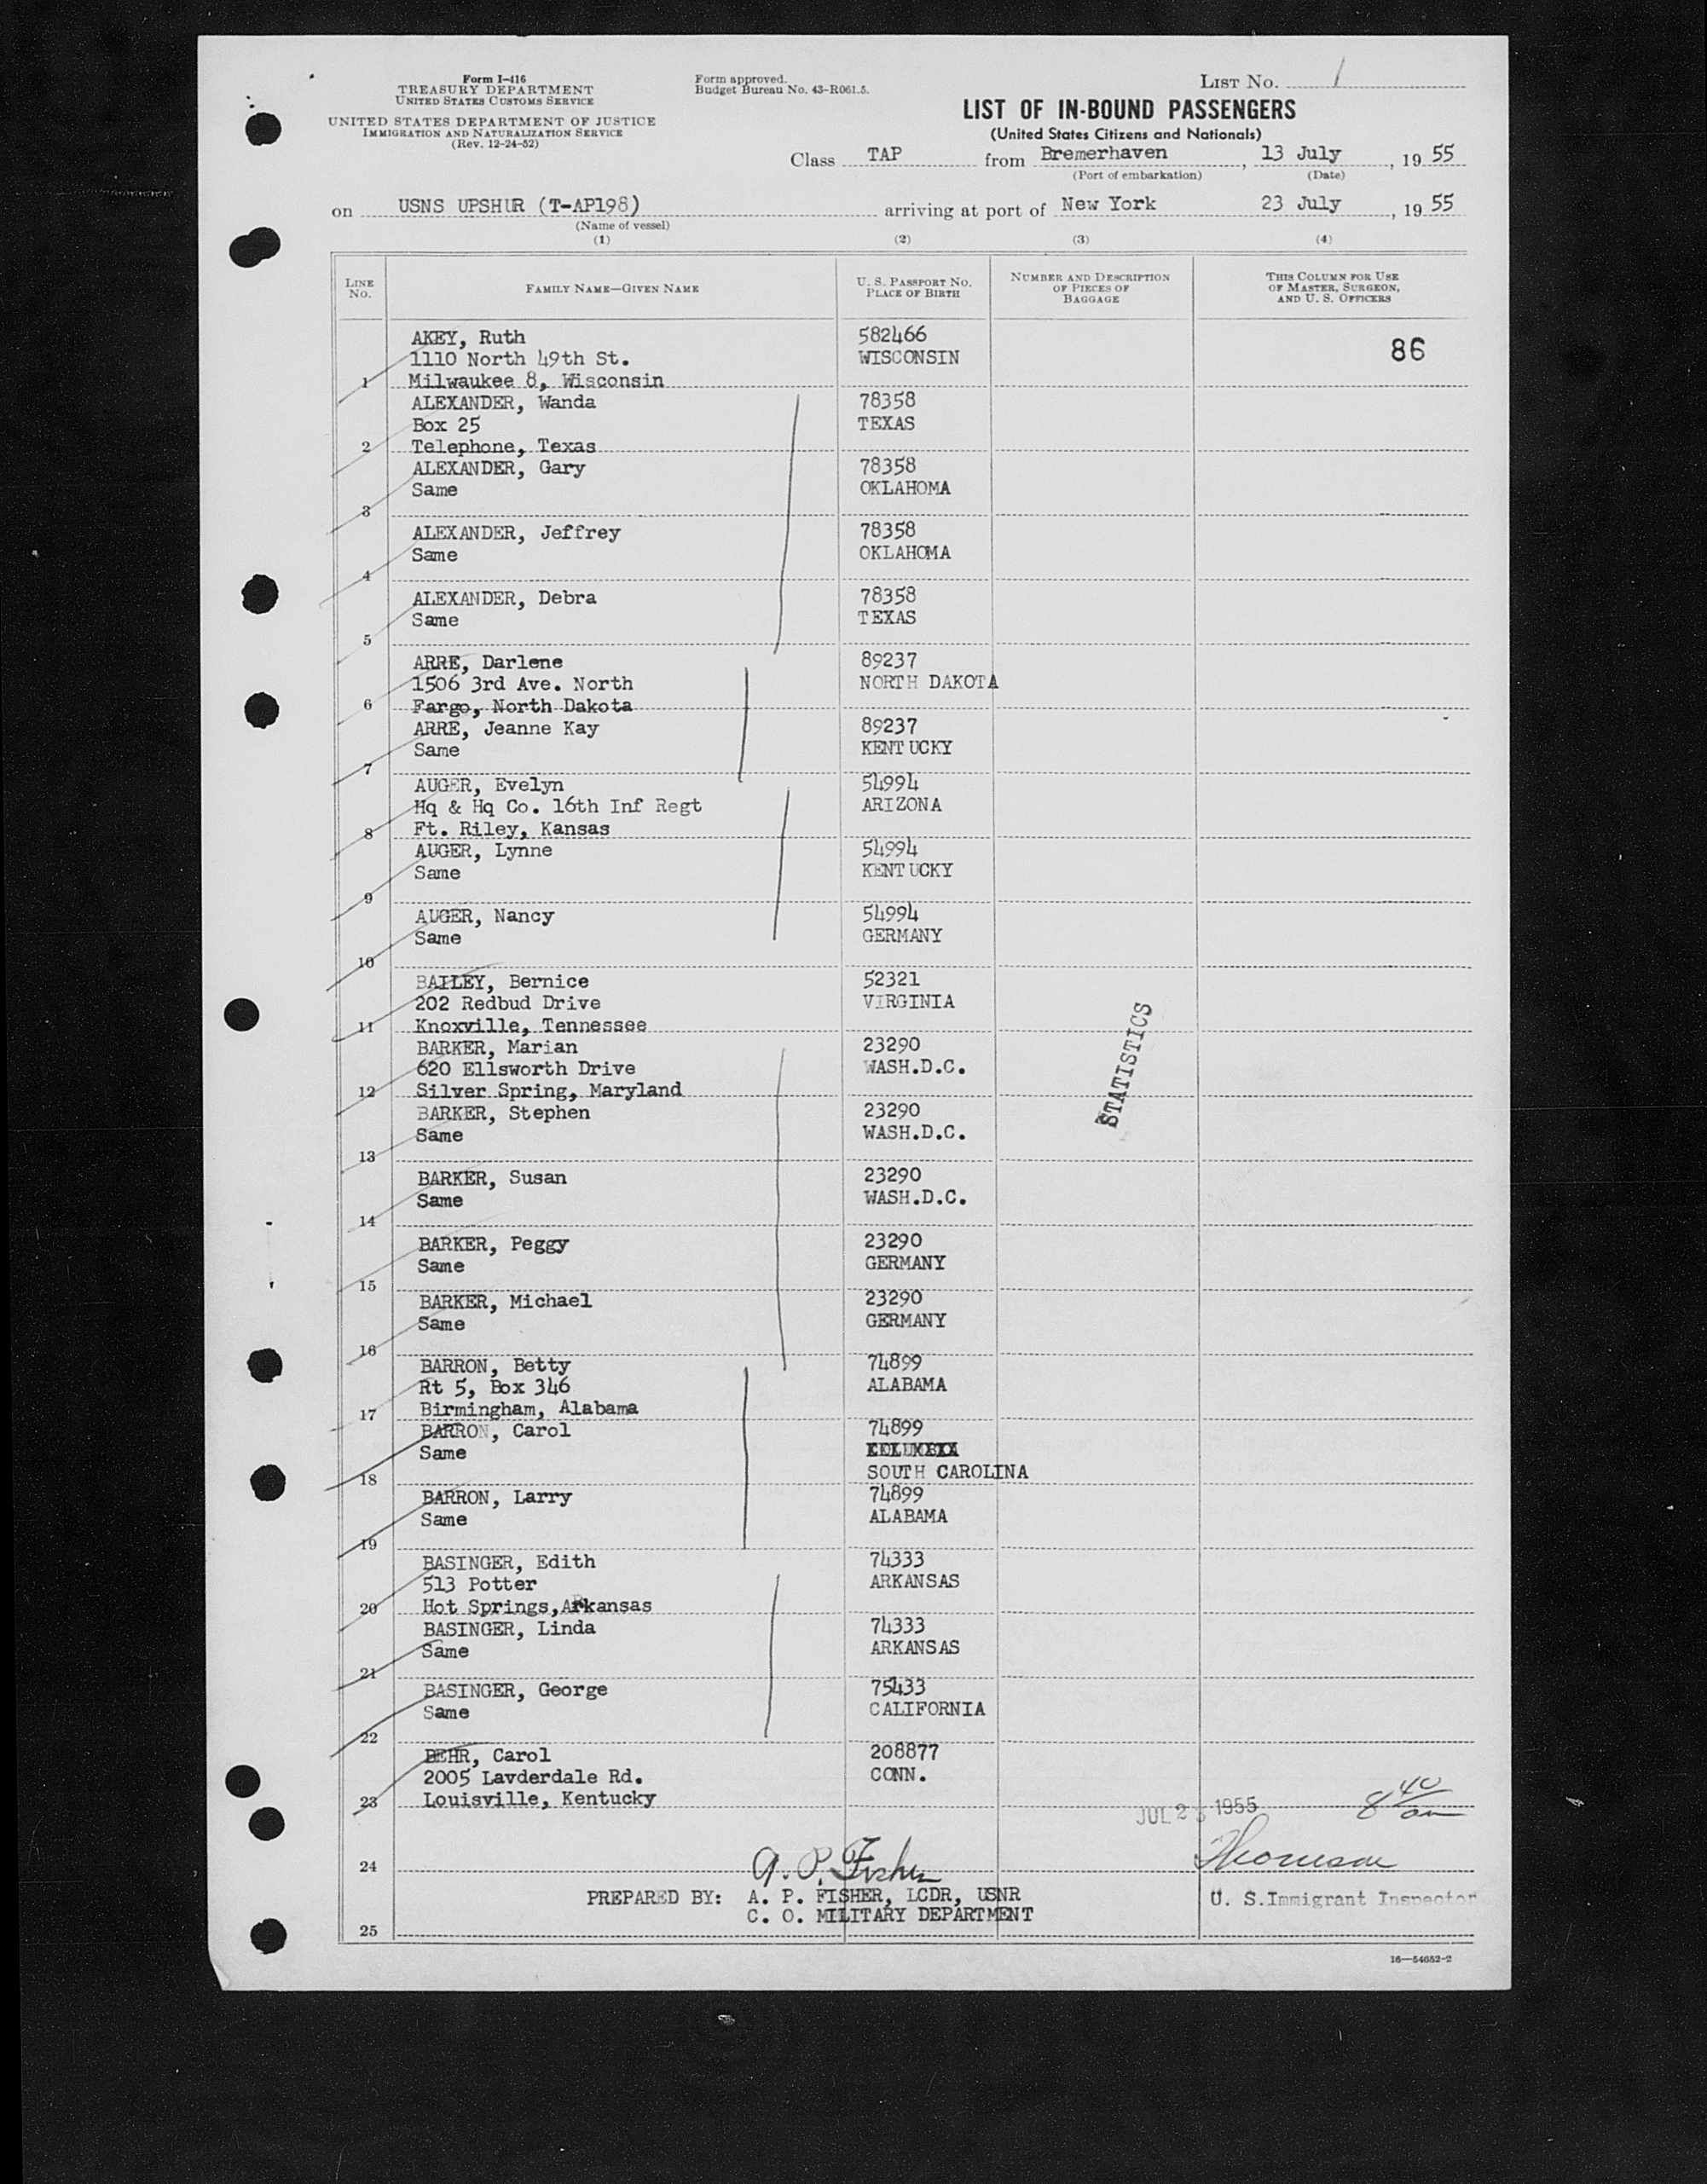 Form I-416
TREASURY DEPARTMENT
UNITED STATES CUSTOMS SERVICE
UNITED STATES DEPARTMENT OF JUSTICE
IMMIGRATION AND NATURALIZATION SERVICE
(Rev. 12-24-52)
Form approved.
Budget Bureau No. 43-R061.5.
LIST NO. 1
LIST OF IN-BOUND PASSENGERS
(United States Citizens and Nationals)
Class TAP from Bremerhaven, 13 July, 1955
(Port of embarkation) (Date)
on USNS UPSHUR (T-AP198) arriving at port of New York 23 July, 1955
(Name of vessel)
(1) (2) (3) (4)
LINE NO. FAMILY NAME—GIVEN NAME U. S. PASSPORT NO. PLACE OF BIRTH NUMBER AND DESCRIPTION OF PIECES OF BAGGAGE THIS COLUMN FOR USE OF MASTER, SURGEON, AND U. S. OFFICERS
AKEY, Ruth 582466 86
1110 North 49th St. WISCONSIN
1 Milwaukee 8, Wisconsin
ALEXANDER, Wanda 78358
Box 25 TEXAS
2 Telephone, Texas
ALEXANDER, Gary 78358
Same OKLAHOMA
3
ALEXANDER, Jeffrey 78358
Same OKLAHOMA
4
ALEXANDER, Debra 78358
Same TEXAS
5
ARRE, Darlene 89237
1506 3rd Ave. North NORTH DAKOTA
6 Fargo, North Dakota
ARRE, Jeanne Kay 89237
Same KENTUCKY
7
AUGER, Evelyn 54994
Hq & Hq Co. 16th Inf Regt ARIZONA
8 Ft. Riley, Kansas
AUGER, Lynne 54994
Same KENTUCKY
9
AUGER, Nancy 54994
Same GERMANY
10
BAILEY, Bernice 52321
202 Redbud Drive VIRGINIA
11 Knoxville, Tennessee
BARKER, Marian 23290
620 Ellsworth Drive WASH.D.C.
12 Silver Spring, Maryland
STATISTICS
BARKER, Stephen 23290
Same WASH.D.C.
13
BARKER, Susan 23290
Same WASH.D.C.
14
BARKER, Peggy 23290
Same GERMANY
15
BARKER, Michael 23290
Same GERMANY
16
BARRON, Betty 74899
Rt 5, Box 346 ALABAMA
17 Birmingham, Alabama
BARRON, Carol 74899
Same
18 SOUTH CAROLINA
BARRON, Larry 74899
Same ALABAMA
19
BASINGER, Edith 74333
513 Potter ARKANSAS
20 Hot Springs, Arkansas
BASINGER, Linda 74333
Same ARKANSAS
21
BASINGER, George
Same CALIFORNIA
22
BEHR, Carol 208877
2005 Lavderdale Rd. CONN.
23 Louisville, Kentucky
JUL 2 1955 8 40 am
24 A. P. Fisher Thomson
PREPARED BY: A. P. FISHER, LCDR, USNR U. S. Immigrant Inspector
C. O. MILITARY DEPARTMENT
25
16—54652-2